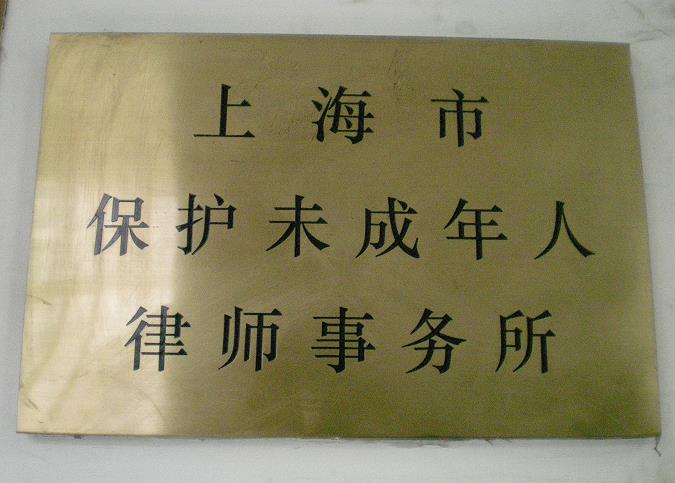 上海市
保护未成年人
律师事务所